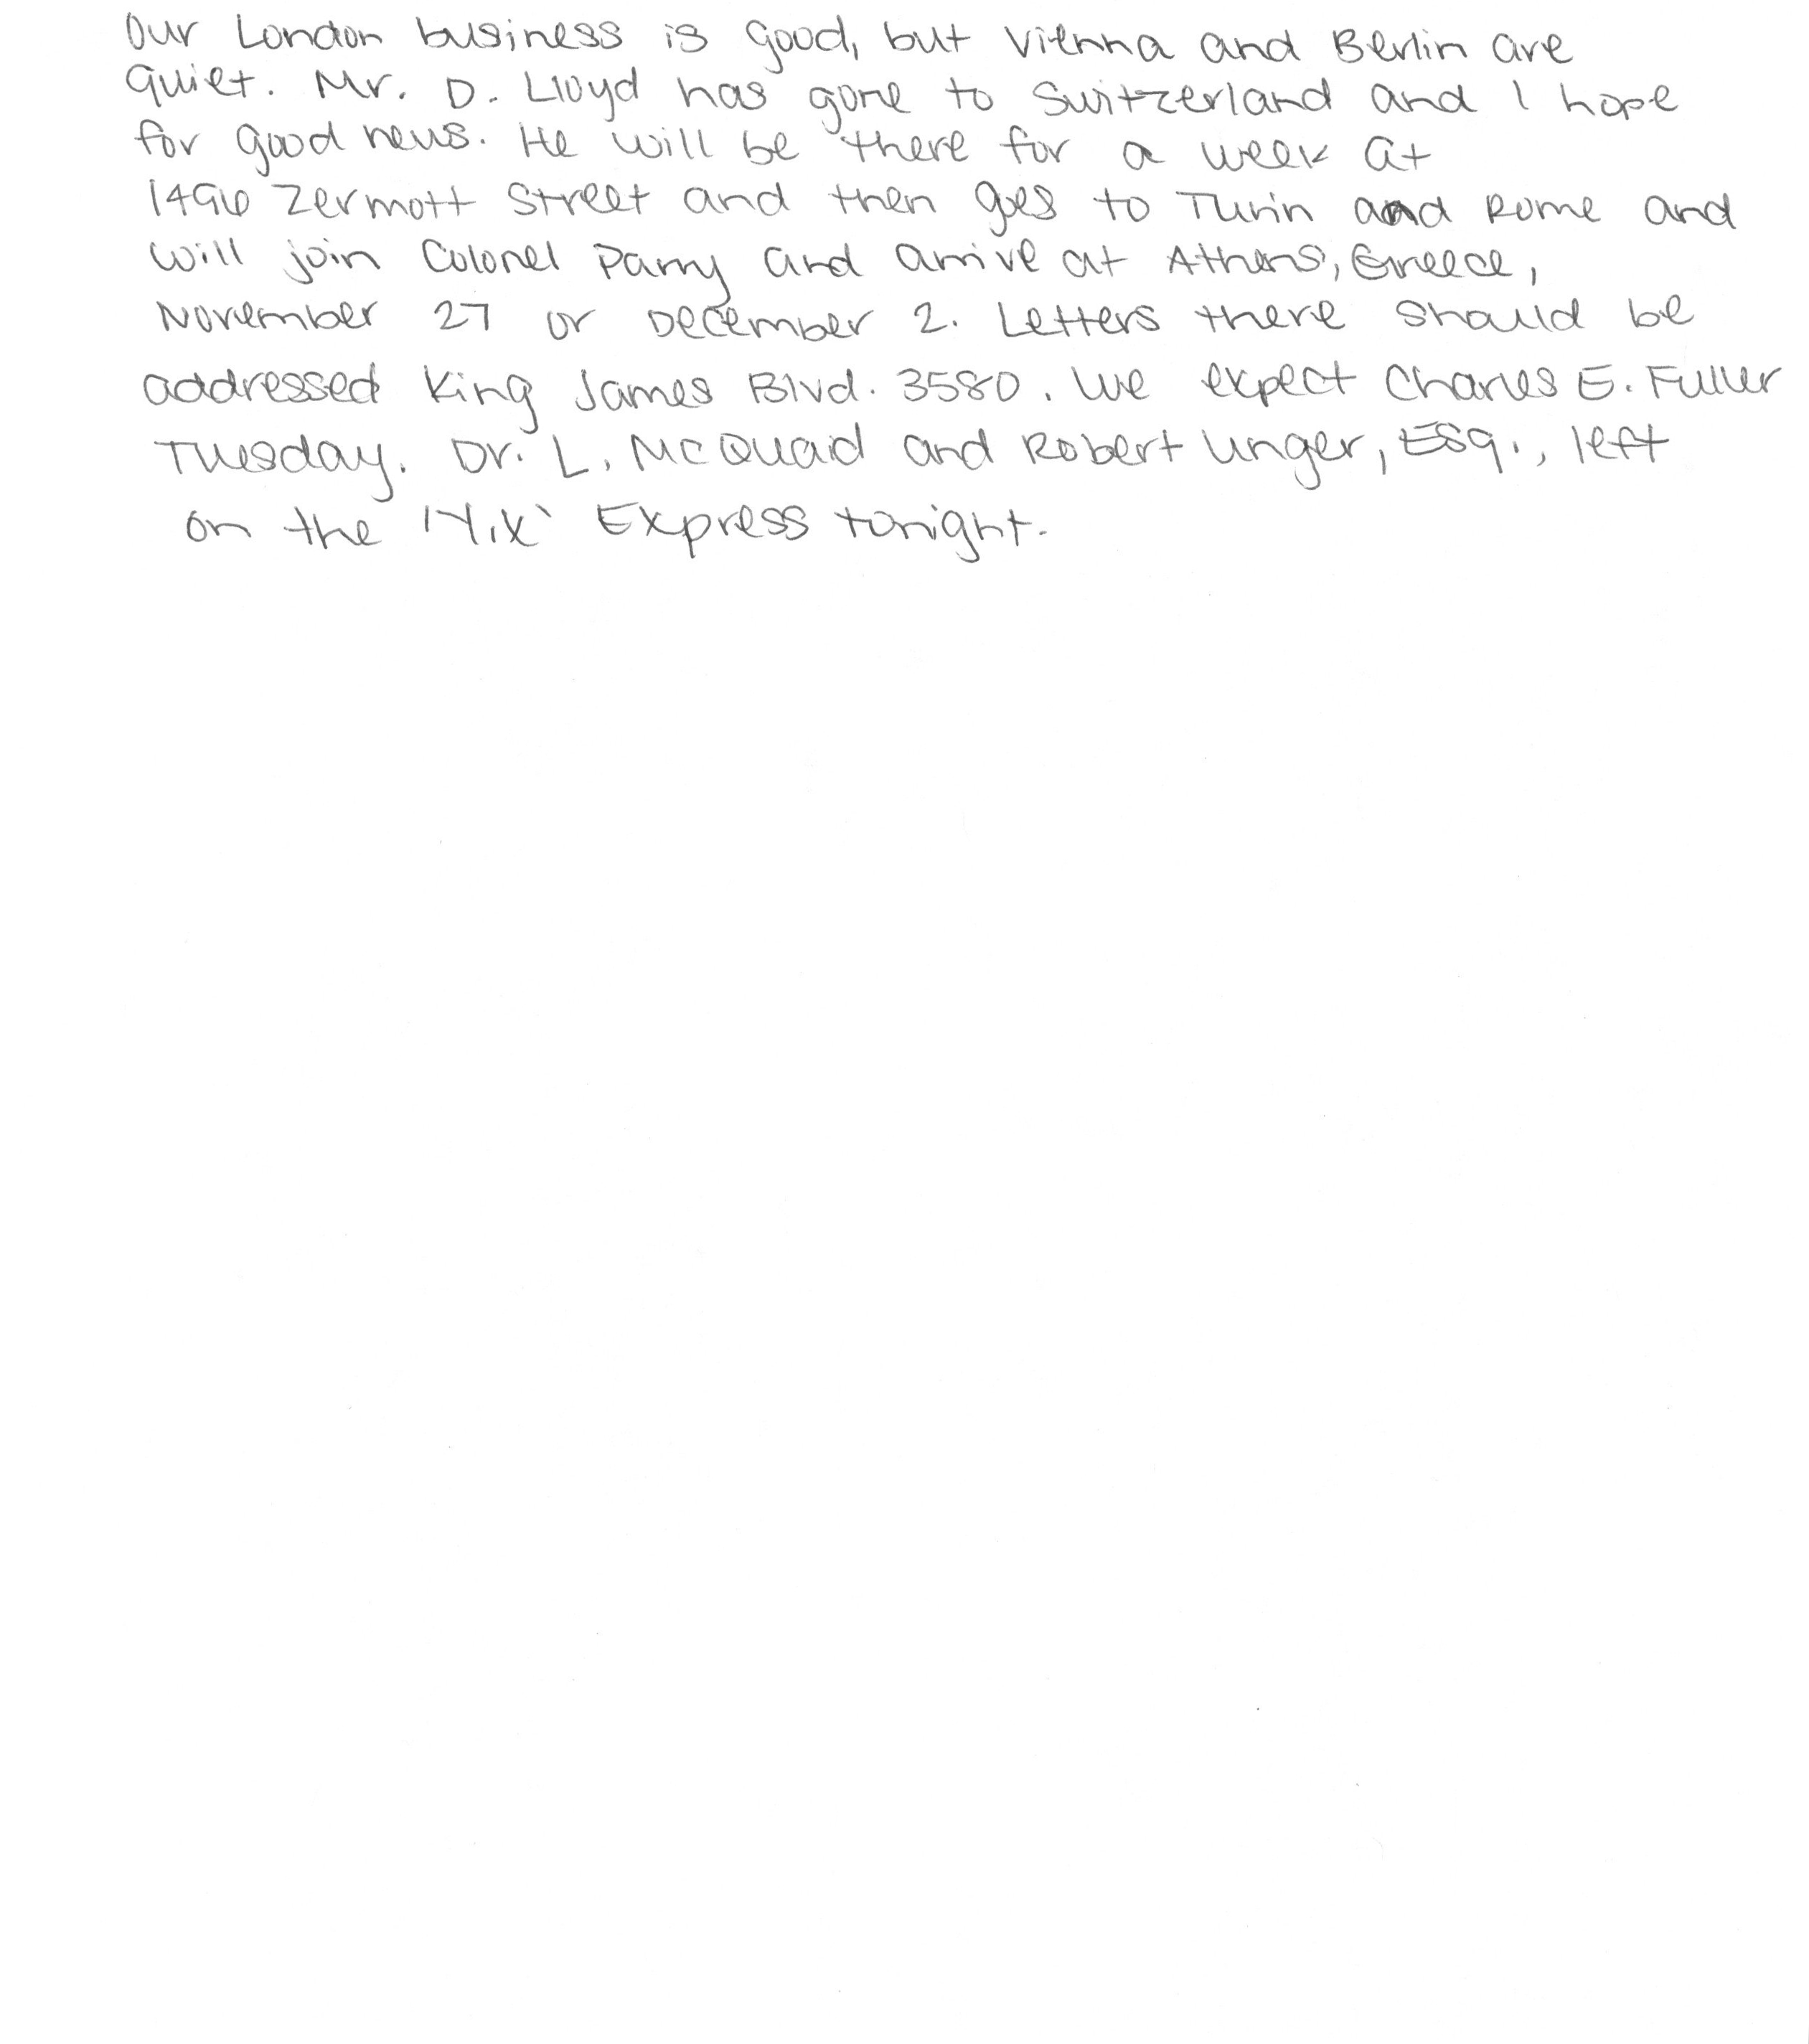 Our London business is good, but Vienna and Berlin are
quiet. Mr. D. Lloyd has gone to Switzerland and I hope
for good news. He will be there for a week at
1496 Zermott Street and then goes to Turin and Rome and
will join Colonel Parry and arrive at Athens, Greece,
November 27 or December 2. Letters there should be
addressed King James Blvd. 3580. We expect Charles E. Fuller
Tuesday. Dr. L. McQuaid and Robert Unger, Esq., left
on the 'Y.X' Express tonight.